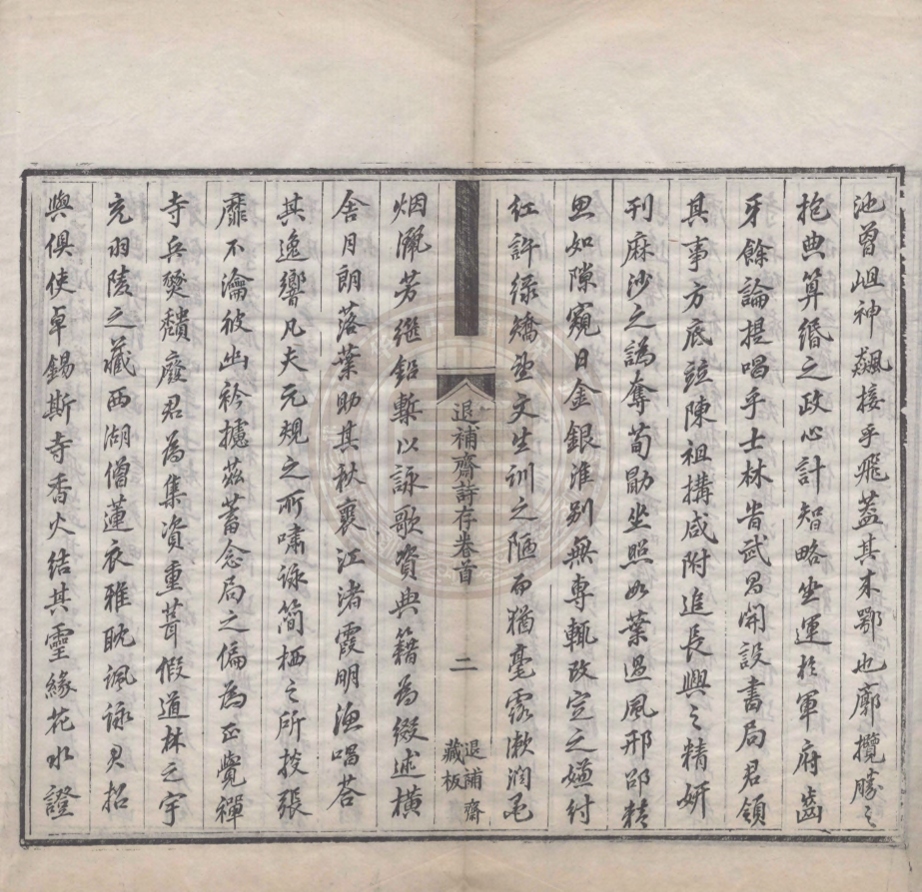 池曾岨神飆接乎飛蓋其來鄂也廓攬勝之
抱典算緡之政心計智略坐運於軍府齒
牙餘論提唱乎士林當武昌開設書局君領
其事方底竝陳祖構咸附追長興之精妍
刊麻沙之譌奪荀勖坐照如葉過風邢邵精
思如隙窺日金銀准别無專輒改定之嫌紂
紅許綠矯望文生訓之陋而猶毫露漱潤毛
退補齋詩存卷首
二
退補齋
藏板
烟灑芳繼鉛槧以詠歌資典籍為綴述橫
舍月朗落葉助其秋襄江渚霞明漁唱荅
其逸響凡夫元規之所嘯詠簡栖之所挍張
靡不瀹彼幽衿攄茲蓄念局之偏為正覺禪
寺兵燹頹廢君為集資重葺假道林之宇
充羽陵之藏西湖僧蓮衣雅耽諷詠君招
與俱使卓錫斯寺香火結其靈緣花水證